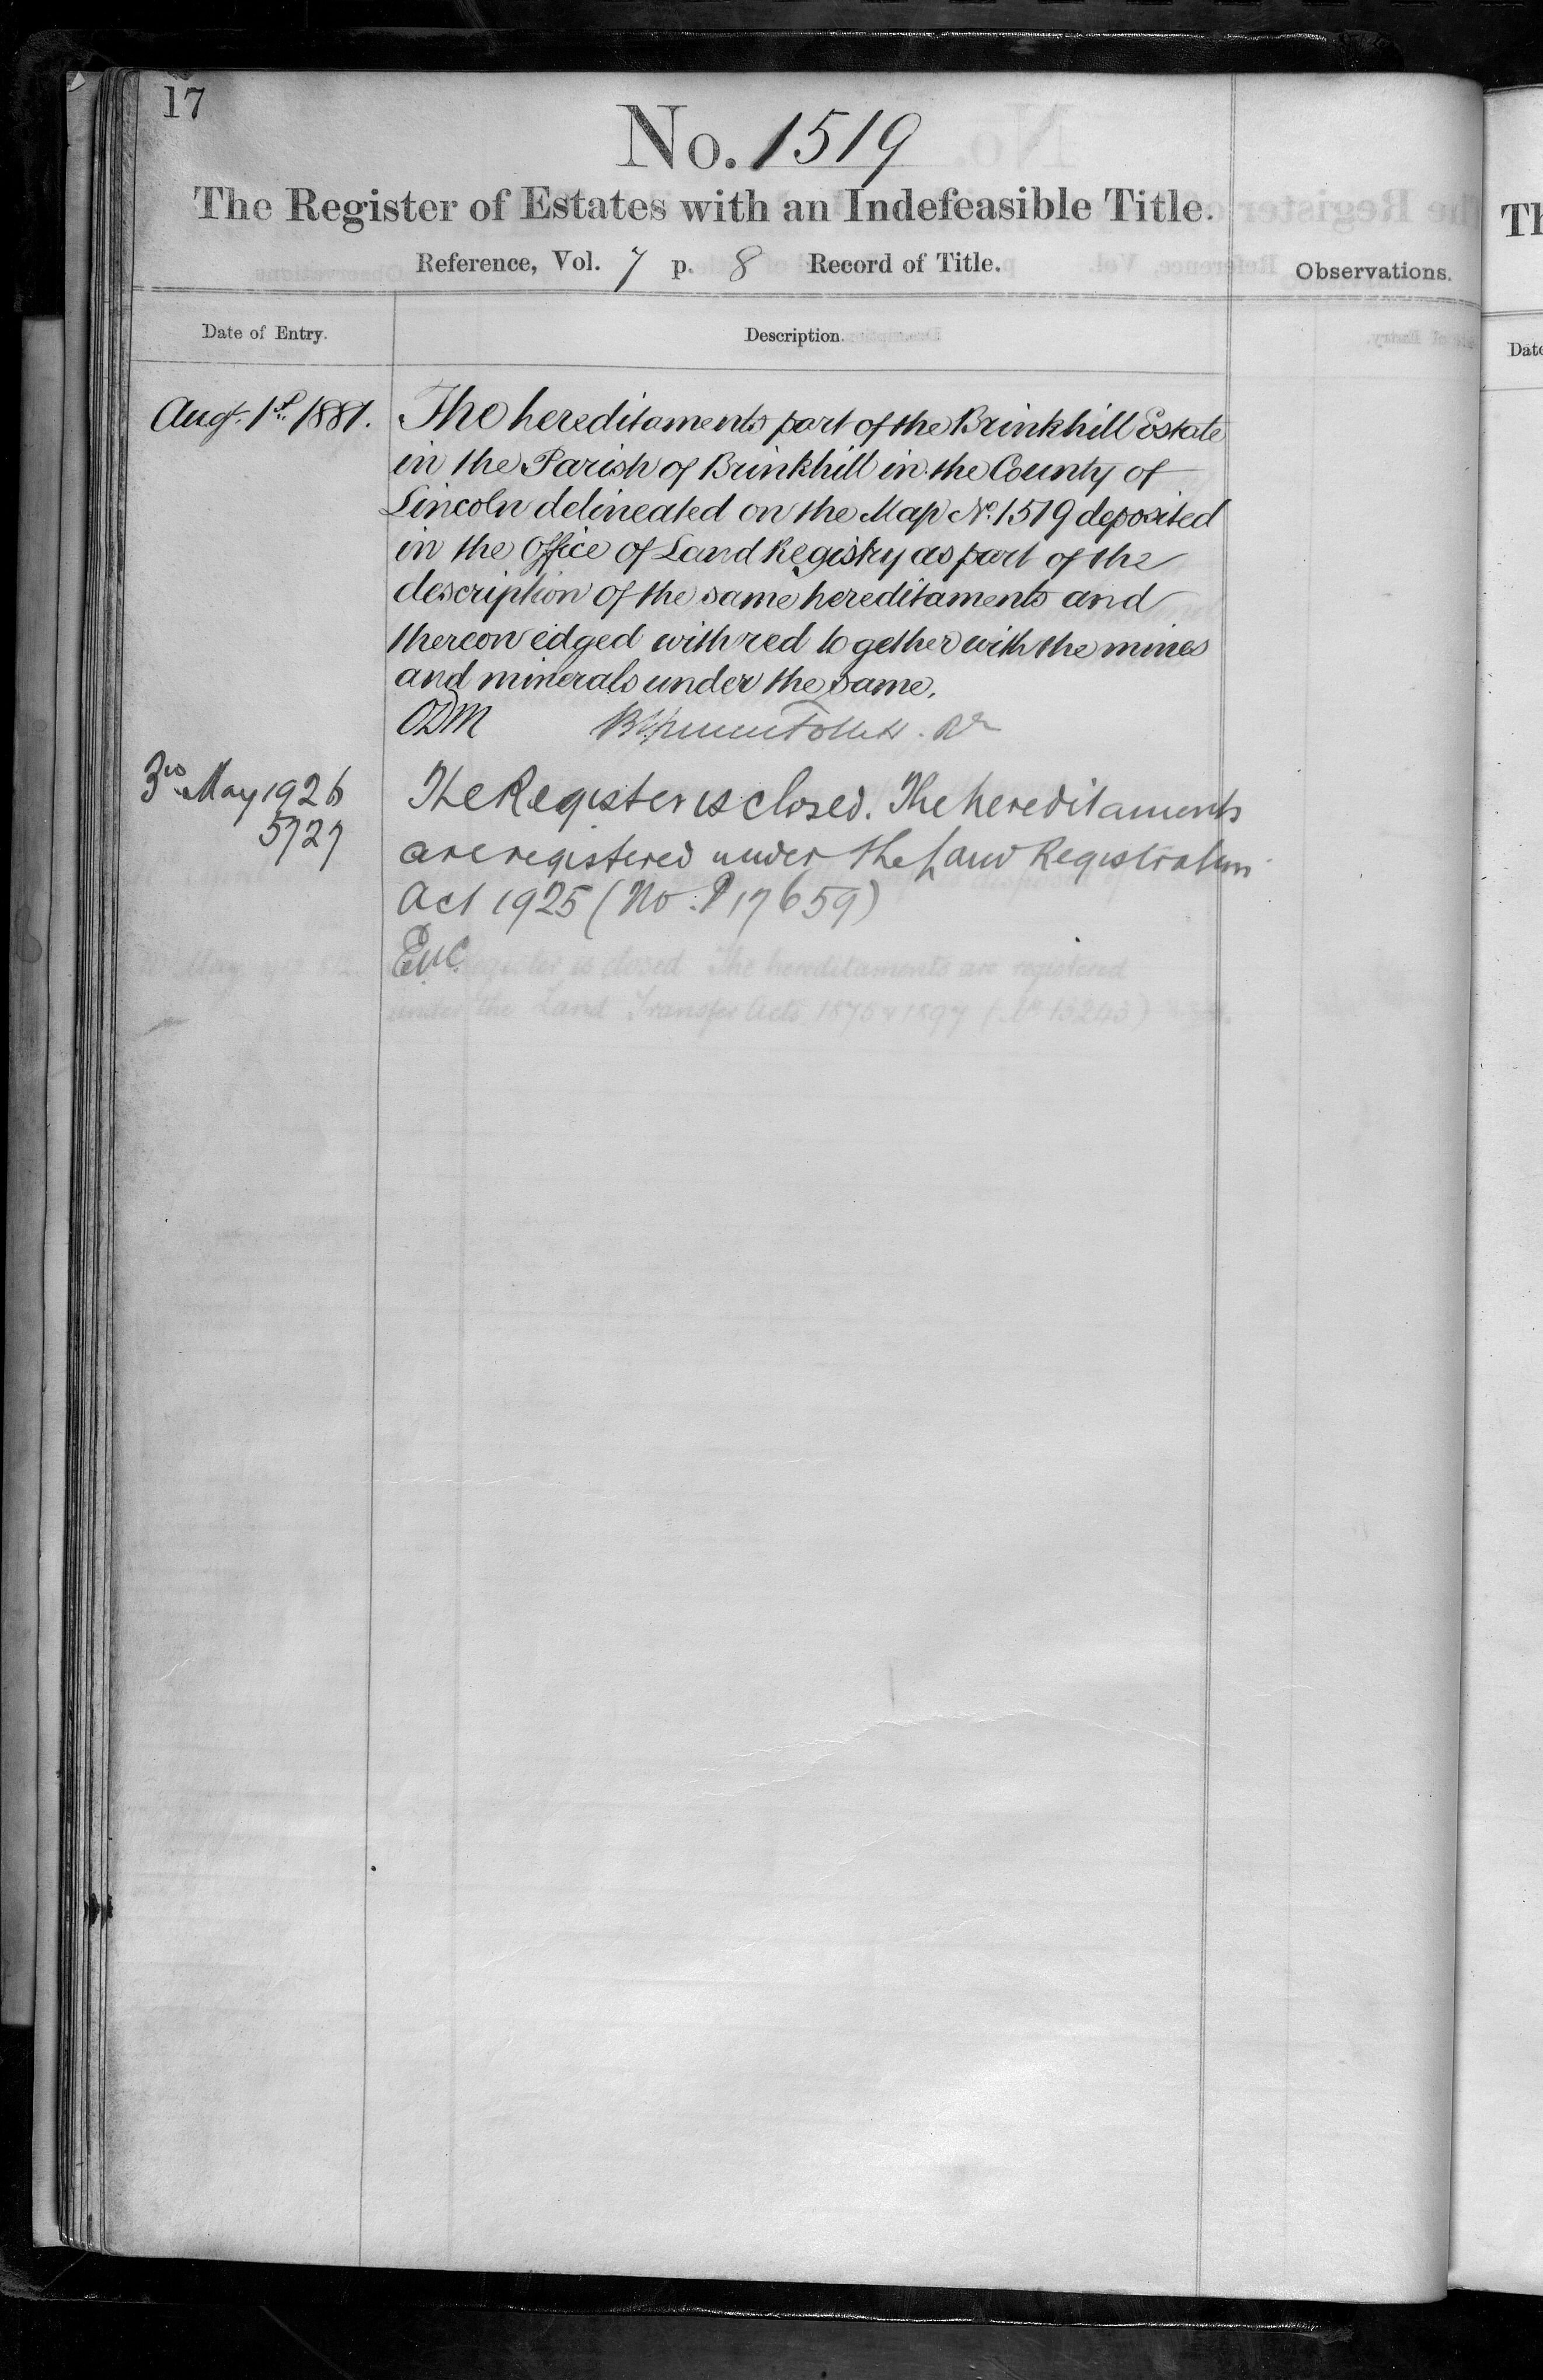 17
No. 1519
The Register of Estates with an Indefeasible Title.
Reference, Vol. 7 p. 8 Record of Title.
Observations.
Date of Entry.
Description.
Augt. 1st. 1881.
The hereditaments part of the Brinkhill Estate
in the Parish of Brinkhill in the County of
Lincoln delineated on the Map No. 1519 deposited
in the Office of Land Registry as part of the
description of the same hereditaments and
thereon edged with red together with the mines
and minerals under the same.
ODM
3rd May 1926
5727
The Register is closed. The hereditaments
are registered under the Land Registration
Act 1925 (No. P17659)
register is closed The hereditaments are registered
under the Land Transfer Acts, 1875 & 1897